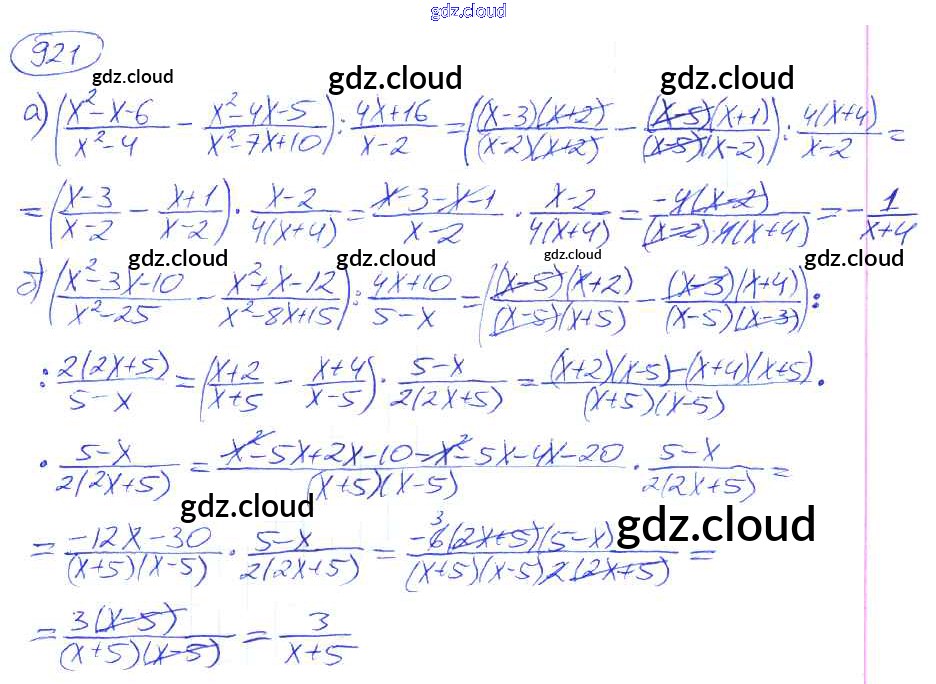 gdz.cloud
921
gdz.cloud gdz.cloud gdz.cloud
а) ((x²-x-6)/(x²-4) - (x²-4x-5)/(x²-7x+10)) : (4x+16)/(x-2) = (((x-3)(x+2))/((x-2)(x+2)) - ((x-5)(x+1))/((x-5)(x-2))) : (4(x+4))/(x-2) =
= ((x-3)/(x-2) - (x+1)/(x-2)) · (x-2)/(4(x+4)) = (x-3-x-1)/(x-2) · (x-2)/(4(x+4)) = (-4(x-2))/((x-2)·4(x+4)) = -1/(x+4)
gdz.cloud gdz.cloud gdz.cloud gdz.cloud
б) ((x²-3x-10)/(x²-25) - (x²+x-12)/(x²-8x+15)) : (4x+10)/(5-x) = (((x-5)(x+2))/((x-5)(x+5)) - ((x-3)(x+4))/((x-5)(x-3))) :
: (2(2x+5))/(5-x) = ((x+2)/(x+5) - (x+4)/(x-5)) · (5-x)/(2(2x+5)) = ((x+2)(x-5)-(x+4)(x+5))/((x+5)(x-5)) ·
· (5-x)/(2(2x+5)) = (x²-5x+2x-10-x²-5x-4x-20)/((x+5)(x-5)) · (5-x)/(2(2x+5)) =
gdz.cloud gdz.cloud
= (-12x-30)/((x+5)(x-5)) · (5-x)/(2(2x+5)) = (-6 3 (2x+5)(5-x))/((x+5)(x-5)2(2x+5)) =
= (3(x-5))/((x+5)(x-5)) = 3/(x+5)